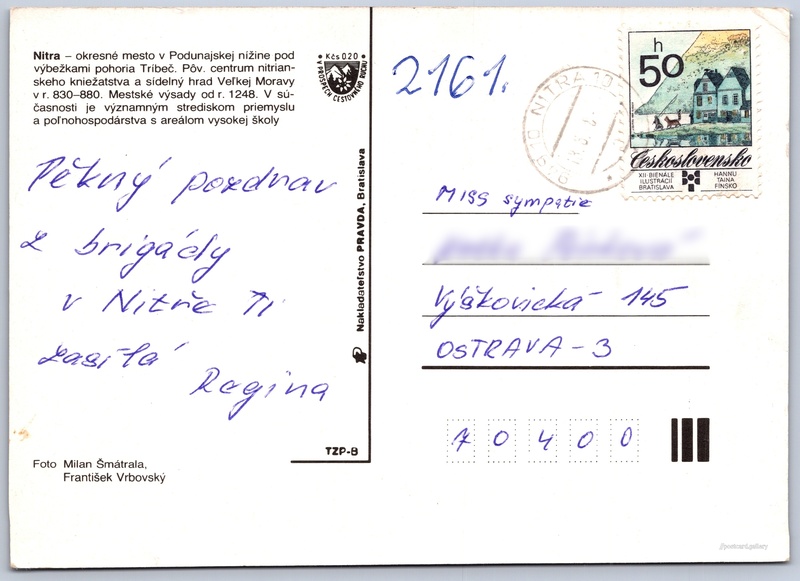 Nitra – okresné mesto v Podunajskej nížine pod
výbežkami pohoria Tríbeč. Pôv. centrum nitrian-
skeho kniežatstva a sídelný hrad Veľkej Moravy
v r. 830–880. Mestské výsady od r. 1248. V sú-
časnosti je významným strediskom priemyslu
a poľnohospodárstva s areálom vysokej školy
Kčs 0.20
V PROSPECH CESTOVNÉHO RUCHU
Pěkný pozdrav
z brigády
v Nitře Ti
zasílá
Regina
Foto Milan Šmátrala,
František Vrbovský
Nakladateľstvo PRAVDA, Bratislava
TZP-B
2161.
NITRA 1
h
50
Československo
XII· BIENALE
ILUSTRÁCIÍ
BRATISLAVA
HANNU
TAINA
FÍNSKO
MISS sympatie
Výškovická 145
OSTRAVA – 3
7 0 4 0 0
postcard.gallery